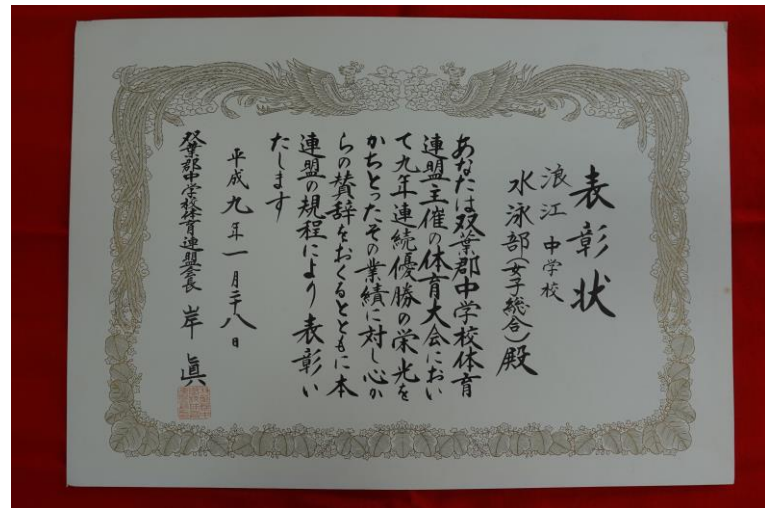 表彰状
浪江中学校
水泳部(女子総合)殿
あなたは双葉郡中学校体育
連盟主催の体育大会におい
て九年連続優勝の栄光を
かちとったその業績に対し心か
らの賛辞をおくるとともに本
連盟の規程により表彰い
たします
平成九年一月二十八日
双葉郡中学校体育連盟会長 岸眞